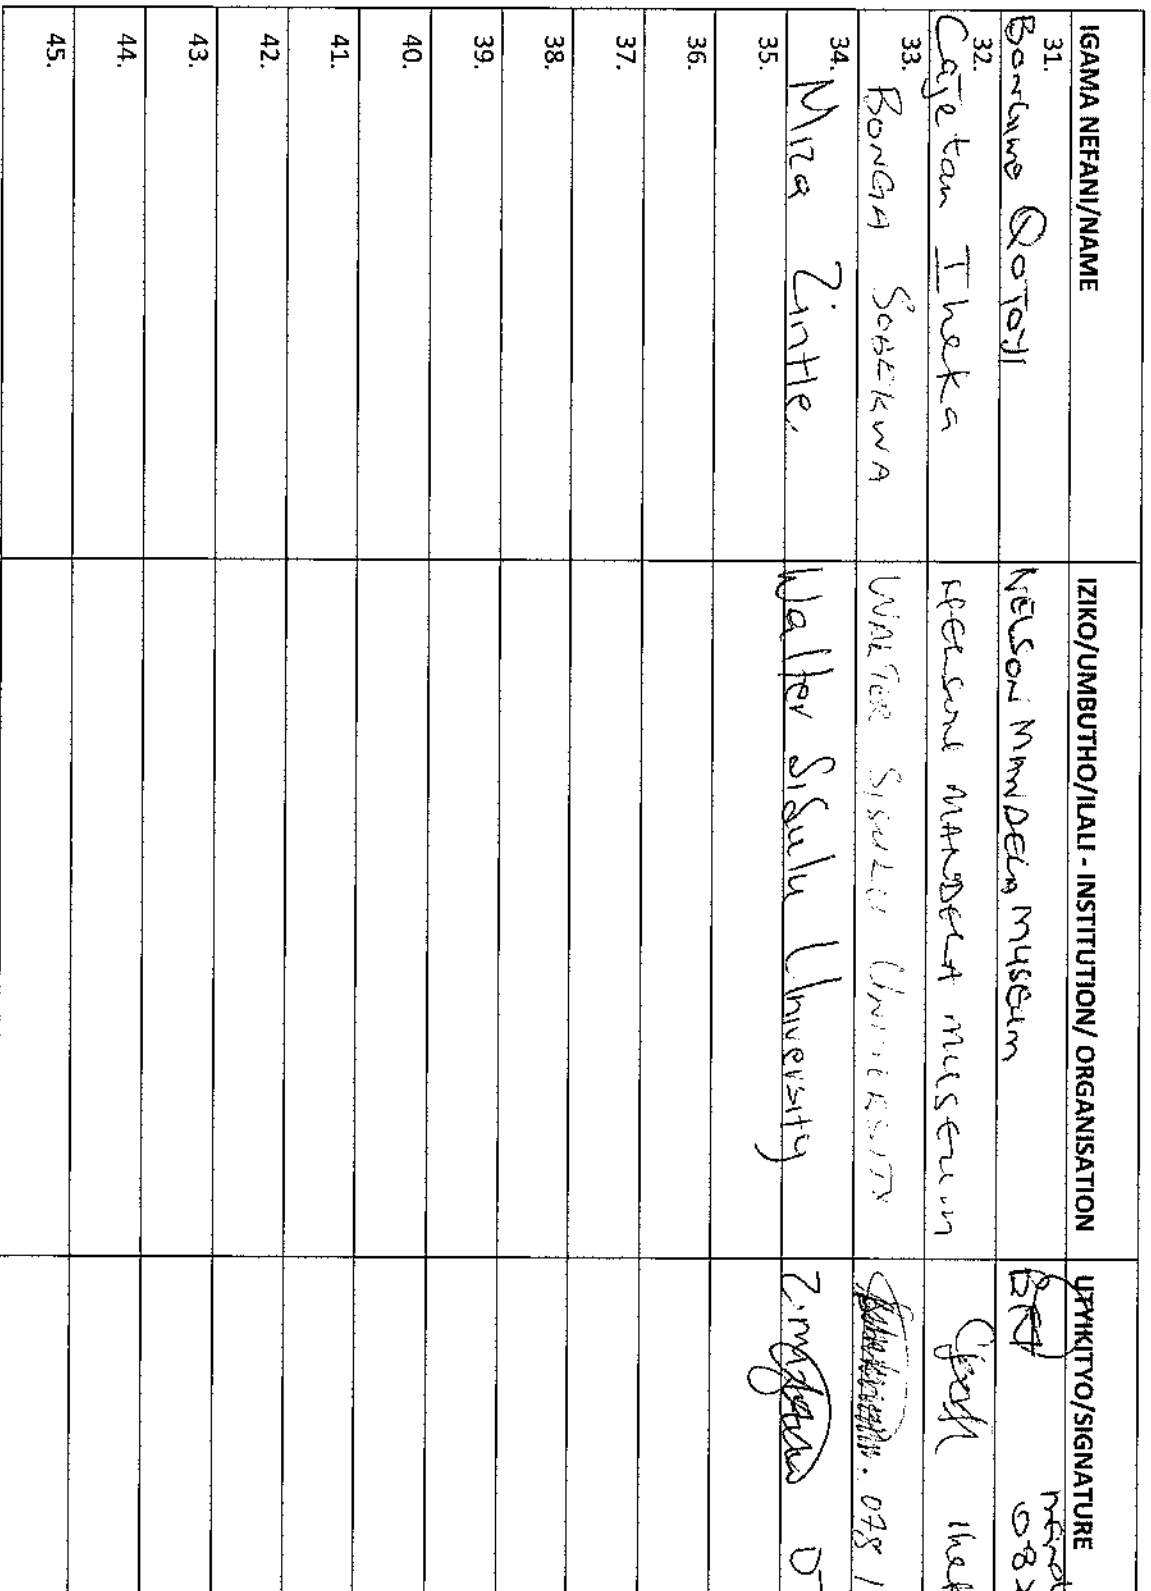 IGAMA NEFANI/NAME IZIKO/UMBUTHO/ILALI - INSTITUTION/ ORGANISATION UTYIKITYO/SIGNATURE
31. QOTOYI NELSON MANDELA MUSEUM
32. Cajetan Iheka NELSON MANDELA MUSEUM
33. BONGA SOBEKWA WALTER SISULU UNIVERSITY 078
34. Miza Zintle Walter Sisulu University
35.
36.
37.
38.
39.
40.
41.
42.
43.
44.
45.